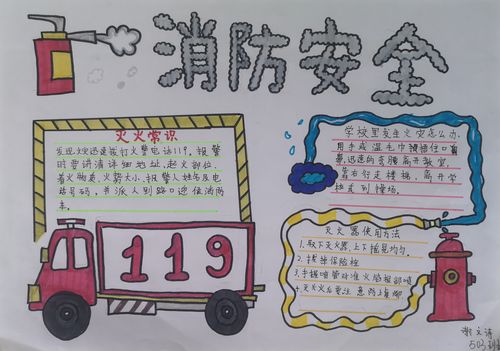 消防安全
灭火常识
发现火灾迅速拨打火警电话119，报警
时要讲清详细地址，起火部位，
着火物质，火势大小，报警人姓名及电
话号码，并派人到路口迎候消防
车。
119
学校里发生火灾怎么办
用手或湿毛巾捂住口鼻
迅速的弯腰离开教室，
靠右行走楼梯，离开学
校走到操场。
灭火器使用方法
1.取下灭火器，上下摇晃均匀。
2.拔掉保险栓
3.手握喷管对准火焰根部喷
4.灭火火后要注意防止复燃
谢文
503班